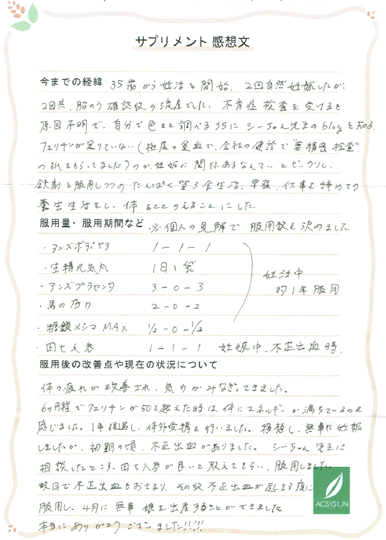 サプリメント 感想文
今までの経緯 35歳から妊活を開始、2回自然妊娠したが、
2回共、胎のう確認後の流産でした。不育症検査を受けるも
原因不明で、自分で色々と調べるうちに しーちゃん先生のblogを知る。
フェリチンが足りていない(極度の貧血で、会社の健診で"要精密検査"
の紙をもらってました)のが、妊娠に関係あるなんて…とビックリし、
鉄剤を服用しつつの たんぱく 食生活、早寝、仕事を辞めての
養生生活をし、体をととのえることにした。
服用量・服用期間など ※個人の見解で服用数を決めました
1-1-1
・生精元気丸 1日1袋
・アンズプラセンタ 3-0-3
・馬の 2-0-2
・糖鎖メシマMAX ½-0-½
妊活中
約1年服用
・田七人参 1-1-1 妊娠中、不正出血時。
服用後の改善点や現在の状況について
体の疲れが改善され、気力がみなぎってきました。
6ヶ月程でフェリチンが50を超えた時は、体にエネルギーが満ちてくるのを
感じました。1年経過し、体外受精を行いました。移植し、無事に妊娠
しましたが、初期の頃、不正出血がありました。しーちゃん先生に
相談したところ、田七人参が良いと教えてもらい、服用しました。
数日で不正出血もおさまり、その後不正出血が起きる度に
服用し、4月に無事 出産することができました
本当にありがとうございました!!!!
ACSYSUN